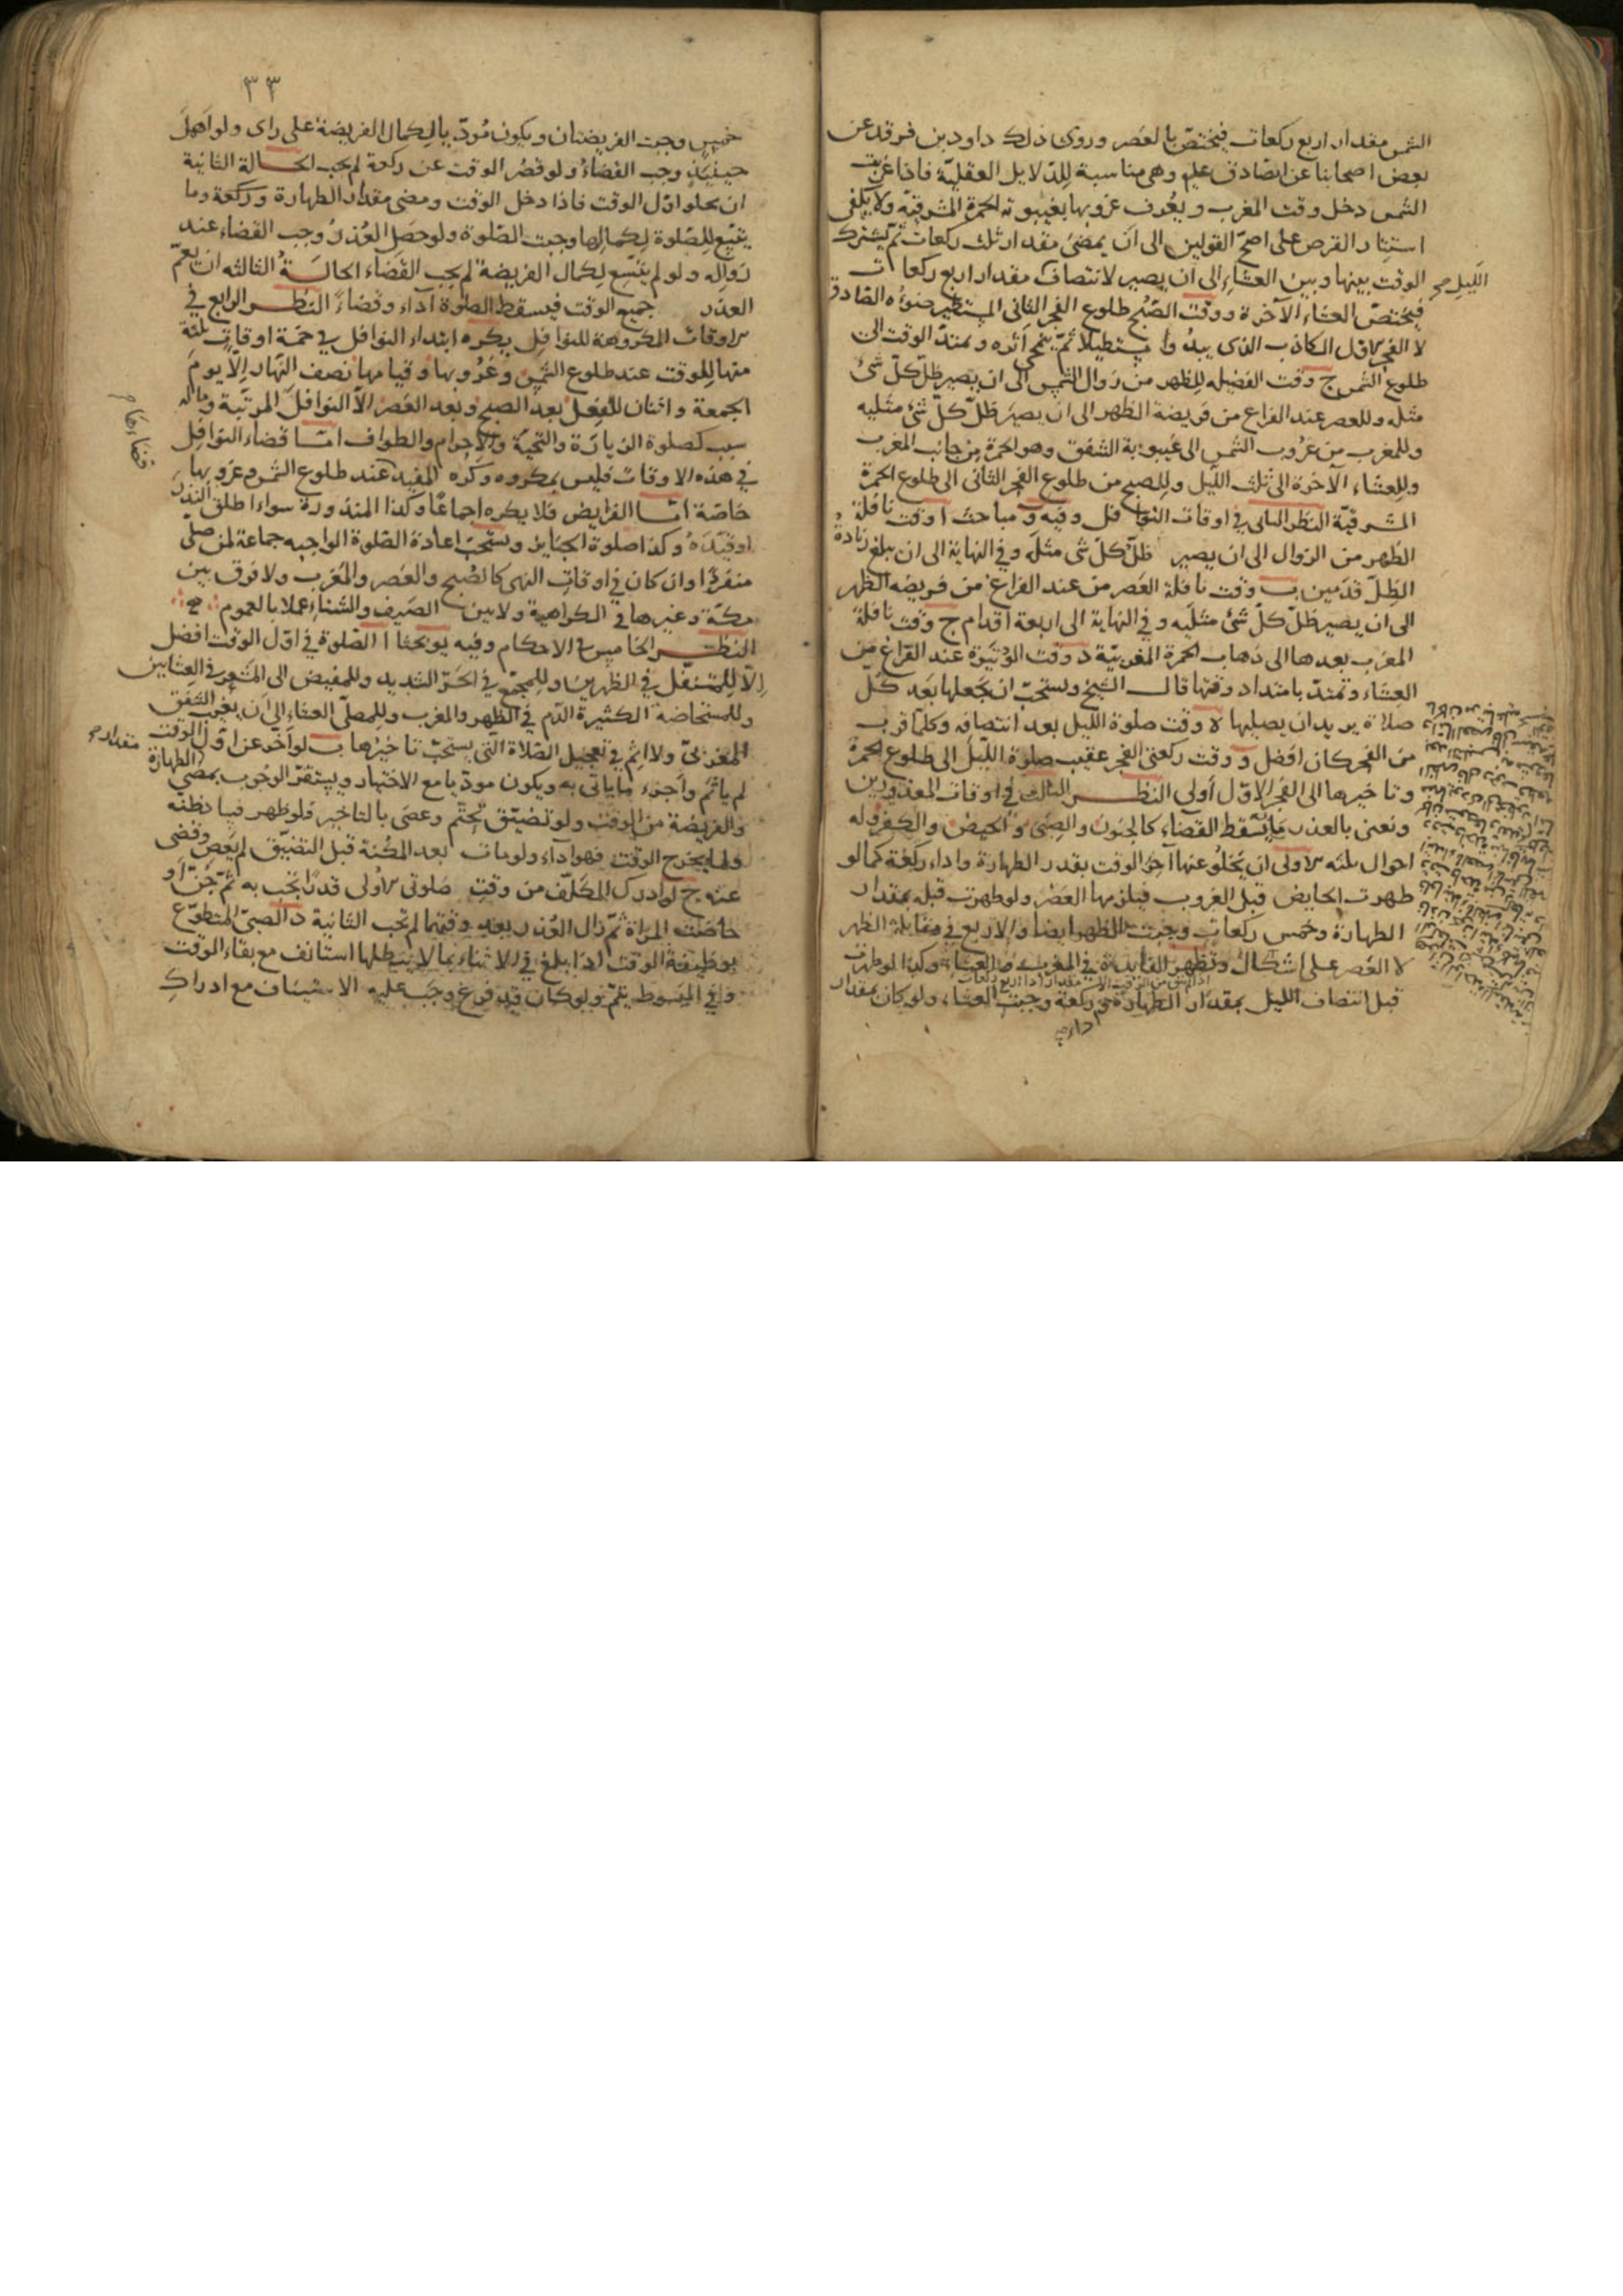 الشمس مقدار اربع ركعات فيختص بالعصر وروى ذلك داود بن فرقد عن
بعض اصحابنا عن الصادق عليه وهى مناسبة للدلايل العقليّة فاذا غربت
الشمس دخل وقت المغرب ويعرف غروبها بغيبوبة الحمرة المشرقيّة ولا يكفى
استتار القرص على اصحّ القولين الى ان يمضى مقدار ثلث ركعات ثمّ يشترك
الوقت بينها وبين العشاء الى ان يصير لانتصاف مقدار اربع ركعات
الليل صح
فيختصّ العشاء الآخرة ووقت الصّبح طلوع الفجر الثانى المستطير ضوؤه الصادق
لا الفجر الاول الكاذب الذى يبدوا مستطيلا ثمّ ينمحى أثره ويمتدّ الوقت الى
طلوع الشمس ج وقت الفضيله للظهر من زوال الشمس الى ان يصير ظلّ كلّ شئ
مثله وللعصر عند الفراغ من فريضة الظهر الى ان يصير ظلّ كلّ شئ مثليه
وللمغرب من غروب الشمس الى غيبوبة الشفق وهو الحمرة من جانب المغرب
وللعشاء الآخرة الى ثلث الليل وللصبح من طلوع الفجر الثانى الى طلوع الحمرة
المشرقيّة النظر الثانى فى اوقات النوافل وفيه و مباحث ا وقت نافلة
الظهر من الزوال الى ان يصير ظلّ كلّ شى مثله وفى النهاية الى ان يبلغ زيادة
الظلّ قدمين ب وقت نافلة العصر من عند الفراغ من فريضه الظهر
الى ان يصير ظلّ كلّ شئ مثليه وفى النهاية الى اربعة اقدام ج وقت نافلة
المغرب بعدها الى ذهاب الحمرة المغربيّة د وقت الوتيرة عند الفراغ من
العشاء وتمتدّ بامتداد وقتها قال الشيخ ويستحبّ ان يجعلها بعد كل
صلاة يريد ان يصليها ه وقت صلوة الليل بعد انتصافه وكلّما قرب
من الفجر كان افضل و وقت ركعتى الفجر عقيب صلوة الليل الى طلوع الحمرة
وتاخيرها الى الفجر الاوّل أولى النظر الثالث فى اوقات المعذورين
ونعنى بالعذر ما يسقط القضاء كالجنون والصبى والحيض والكفر وله
احوال ثلثه الاولى ان يخلو عنها آخر الوقت بقدر الطهارة واداء ركعة كما لو
طهرت الحايض قبل الغروب فيلزمها العصر ولو طهرت قبله بمقدار
الطهارة وخمس ركعات وجبت الظهر ايضا والاربع فى مقابلة الظهر
لا العصر على اشكال وتظهر الفايدة فى المغرب والعشاء وكذا لو طهرت
قبل انتصاف الليل بمقدار الطهارة وركعة وجبت العشاء ولو كان بمقدار
٣٣
خمس وجبت الفريضتان ويكون مؤدّيا لكمال الفريضة على راى ولو اهمل
حينئذ وجب القضاء ولو قصر الوقت عن ركعة لم يجب الحالة الثانية
ان يخلو اوّل الوقت فاذا دخل الوقت ومضى مقدار الطهارة وركعة وما
يتسع للصلوة لكمالها وجبت الصّلوة ولو حصل العذر وجب القضاء عند
زواله ولو لم يتّسع لكمال الفريضة لم يجب القضاء الحالة الثالثه ان يعمّ
العذر جميع الوقت فيسقط الصلوة آداء وقضاءً النظر الرابع فى
الاوقات المكروهة للنوافل يكره ابتداء النوافل فى خمسة اوقات ثلثة
منها للوقت عند طلوع الشمس وغروبها وقيامها نصف النهار الّا يوم
الجمعة واثنان للفعل بعد الصبح وبعد العصر الّا النوافل المرتّبة وماله
سبب كصلوة الزيارة والتحيّة والاحرام والطواف امّا قضاء النوافل
فى هذه الاوقات فليس بمكروه وكره المفيد عند طلوع الشمس وغروبها
خاصّة امّا الفرايض فلا يكره اجماعًا وكذا المنذورة سواء اطلق النذر
او قيّده وكذا صلوة الجنايز ويستحبّ اعادة الصّلوة الواجبه جماعة لمن صلّى
منفردًا وان كان فى اوقات النهى كالصبح والعصر والمغرب ولا فرق بين
مكّة وغيرها فى الكراهية ولا بين الصيف والشتاء عملا بالعموم
النظر الخامس فى الاحكام وفيه يو بحثا ا الصّلوة فى اوّل الوقت افضل
الّا للمتنفّل فى الظهرين وللمجمّع فى الحرّ الشديد وللمفيض الى المشعر فى العشايين
وللمستحاضة الكثيرة الدّم فى الظهر والمغرب وللمصلّى العشاء الى ان يغرب الشفق
المغربىّ ولا اثم فى تعجيل الصّلاة التى يستحبّ تاخيرها ب لو أخّر عن اوّل الوقت
لم ياثم وأجزء ما ياتى به ويكون مودّيا مع الاجتهاد ويستقرّ الوجوب بمضىّ الطهارة
مقدار صح
والفريضة من الوقت ولو تضيّق تحتّم وعصى بالتاخير فلو ظهر فساد ظنه
ولما يخرج الوقت فهو آداء ولو مات بعد المكنة قبل التضيّق لم يعص وقضى
عنه ج لو ادرك المكلّف من وقت صلوتى الاولى قدرًا تجب به ثمّ جنّ أو
حاضت المراة ثمّ زال العذر بعد وقتهما لم تجب الثانية د الصبىّ المتطوّع
بوظيفة الوقت اذا بلغ فى الاثناء بما لا يبطلها استانف مع بقاء الوقت
وفى المبسوط يتمّ ولو كان قد فرغ وجب عليه الاستيناف مع ادراك